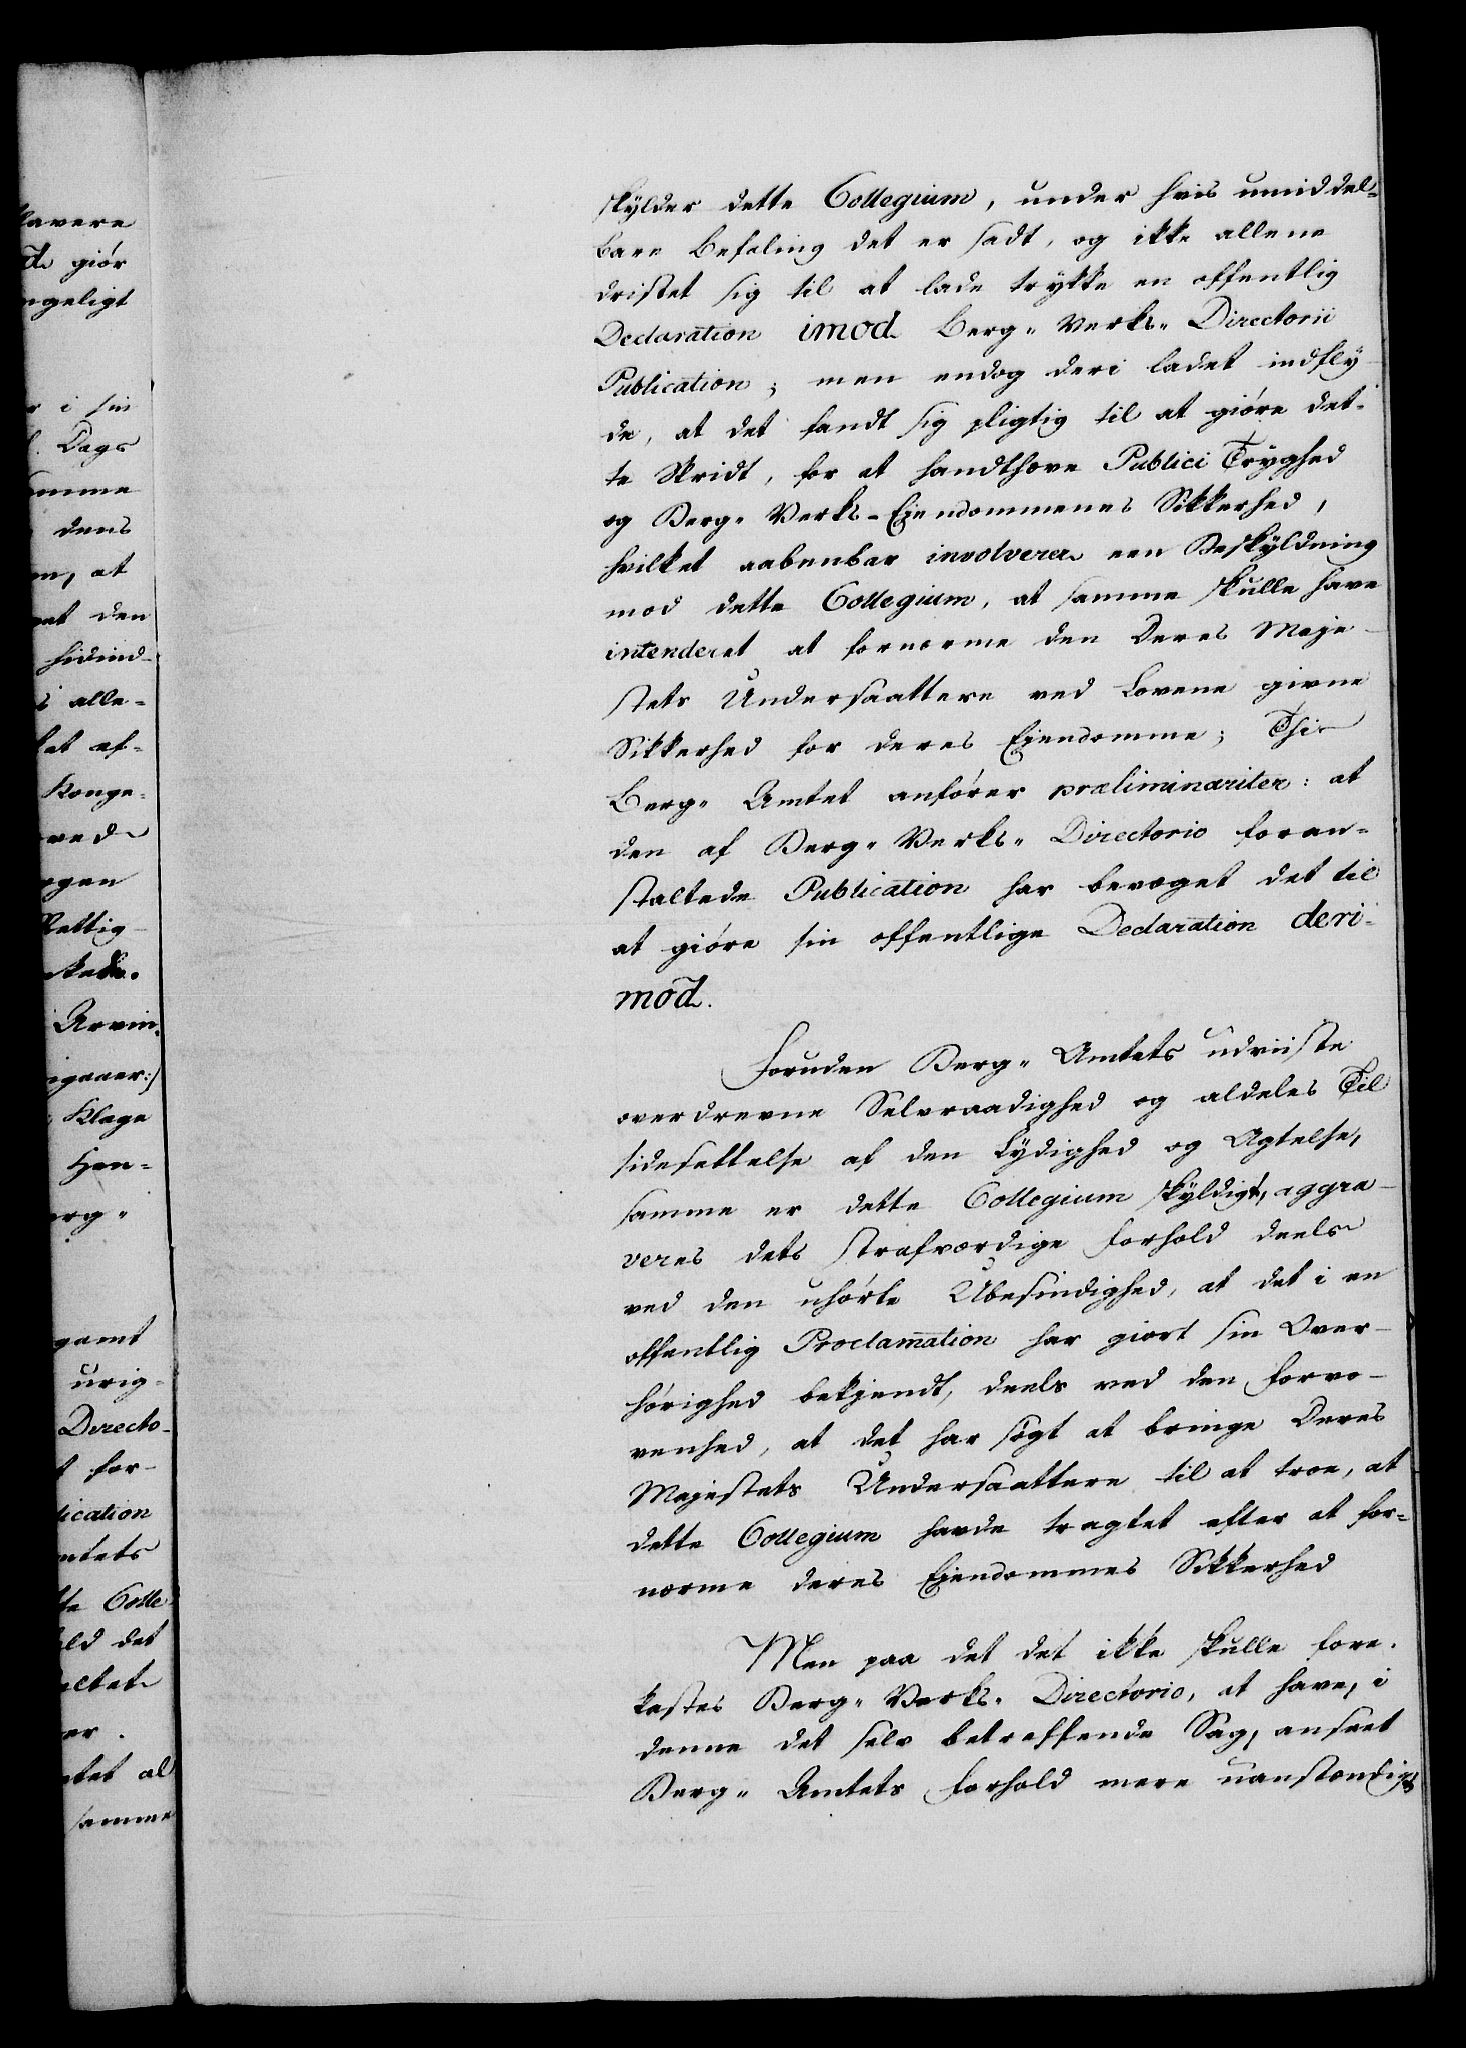 skylder dette Collegium, under hvis umiddel-
bare Befaling det er sadt, og ikke allene
dristet sig til at lade trykke en offentlig
Declaration imod Berg-Verks-Directorii
Publication; men endog deri ladet indfly-
de, at det fandt sig pligtig til at giöre det-
te Skridt, for at handthæve Publici Tryghed
og Berg-Verks-Ejendommenes Sikkerhed,
hvilket aabenbar involverer een Beskyldning
mod dette Collegium, at samme skulle have
intenderet at fornærme den Deres Maje-
stets Undersaattere ved Lovene givne
Sikkerhed for deres Ejendomme; Thi
Berg-Amtet anförer præliminariter: at
den af Berg-Verks-Directorio foran-
staltede Publication har bevæget det til
at giöre sin offentlige Declaration deri-
mod.
Foruden Berg-Amtets udviiste
overdrevne Selvraadighed og aldeles Til
sidesettelse af den Lydighed og Agtelse,
samme er dette Collegium skyldigt, aggra-
veres dets strafværdige Forhold deels
ved den uhörte Ubesindighed, at det i en
offentlig Proclamation har giort sin Over-
hörighed bekjendt, deels ved den Forvo-
venhed, at det har sögt at bringe Deres
Majestets Undersaattere til at troe, at
dette Collegium havde tragtet efter at for-
nærme deres Ejendommes Sikkerhed
Men paa det det ikke skulle fore-
kastes Berg-Verks-Directorio, at have, i
denne det selv betreffende Sag, anseet
Berg-Amtets Forhold mere uanstændigt